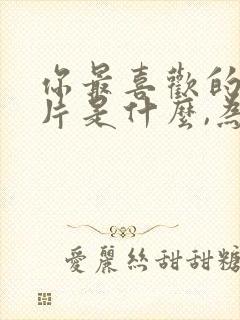 你最喜歡的
片是什麼,為
愛麗絲甜甜糖